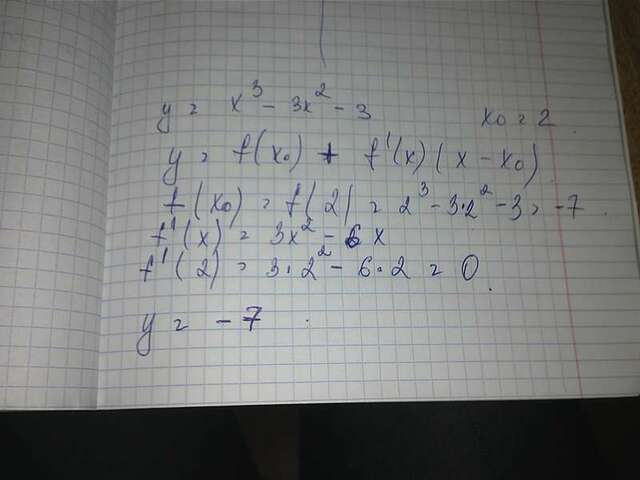 y = x³ - 3x² - 3 x₀ = 2
y = f(x₀) + f'(x)(x - x₀)
f(x₀) = f(2) = 2³ - 3·2² - 3 = -7
f'(x) = 3x² - 6x
f'(2) = 3·2² - 6·2 = 0
y = -7